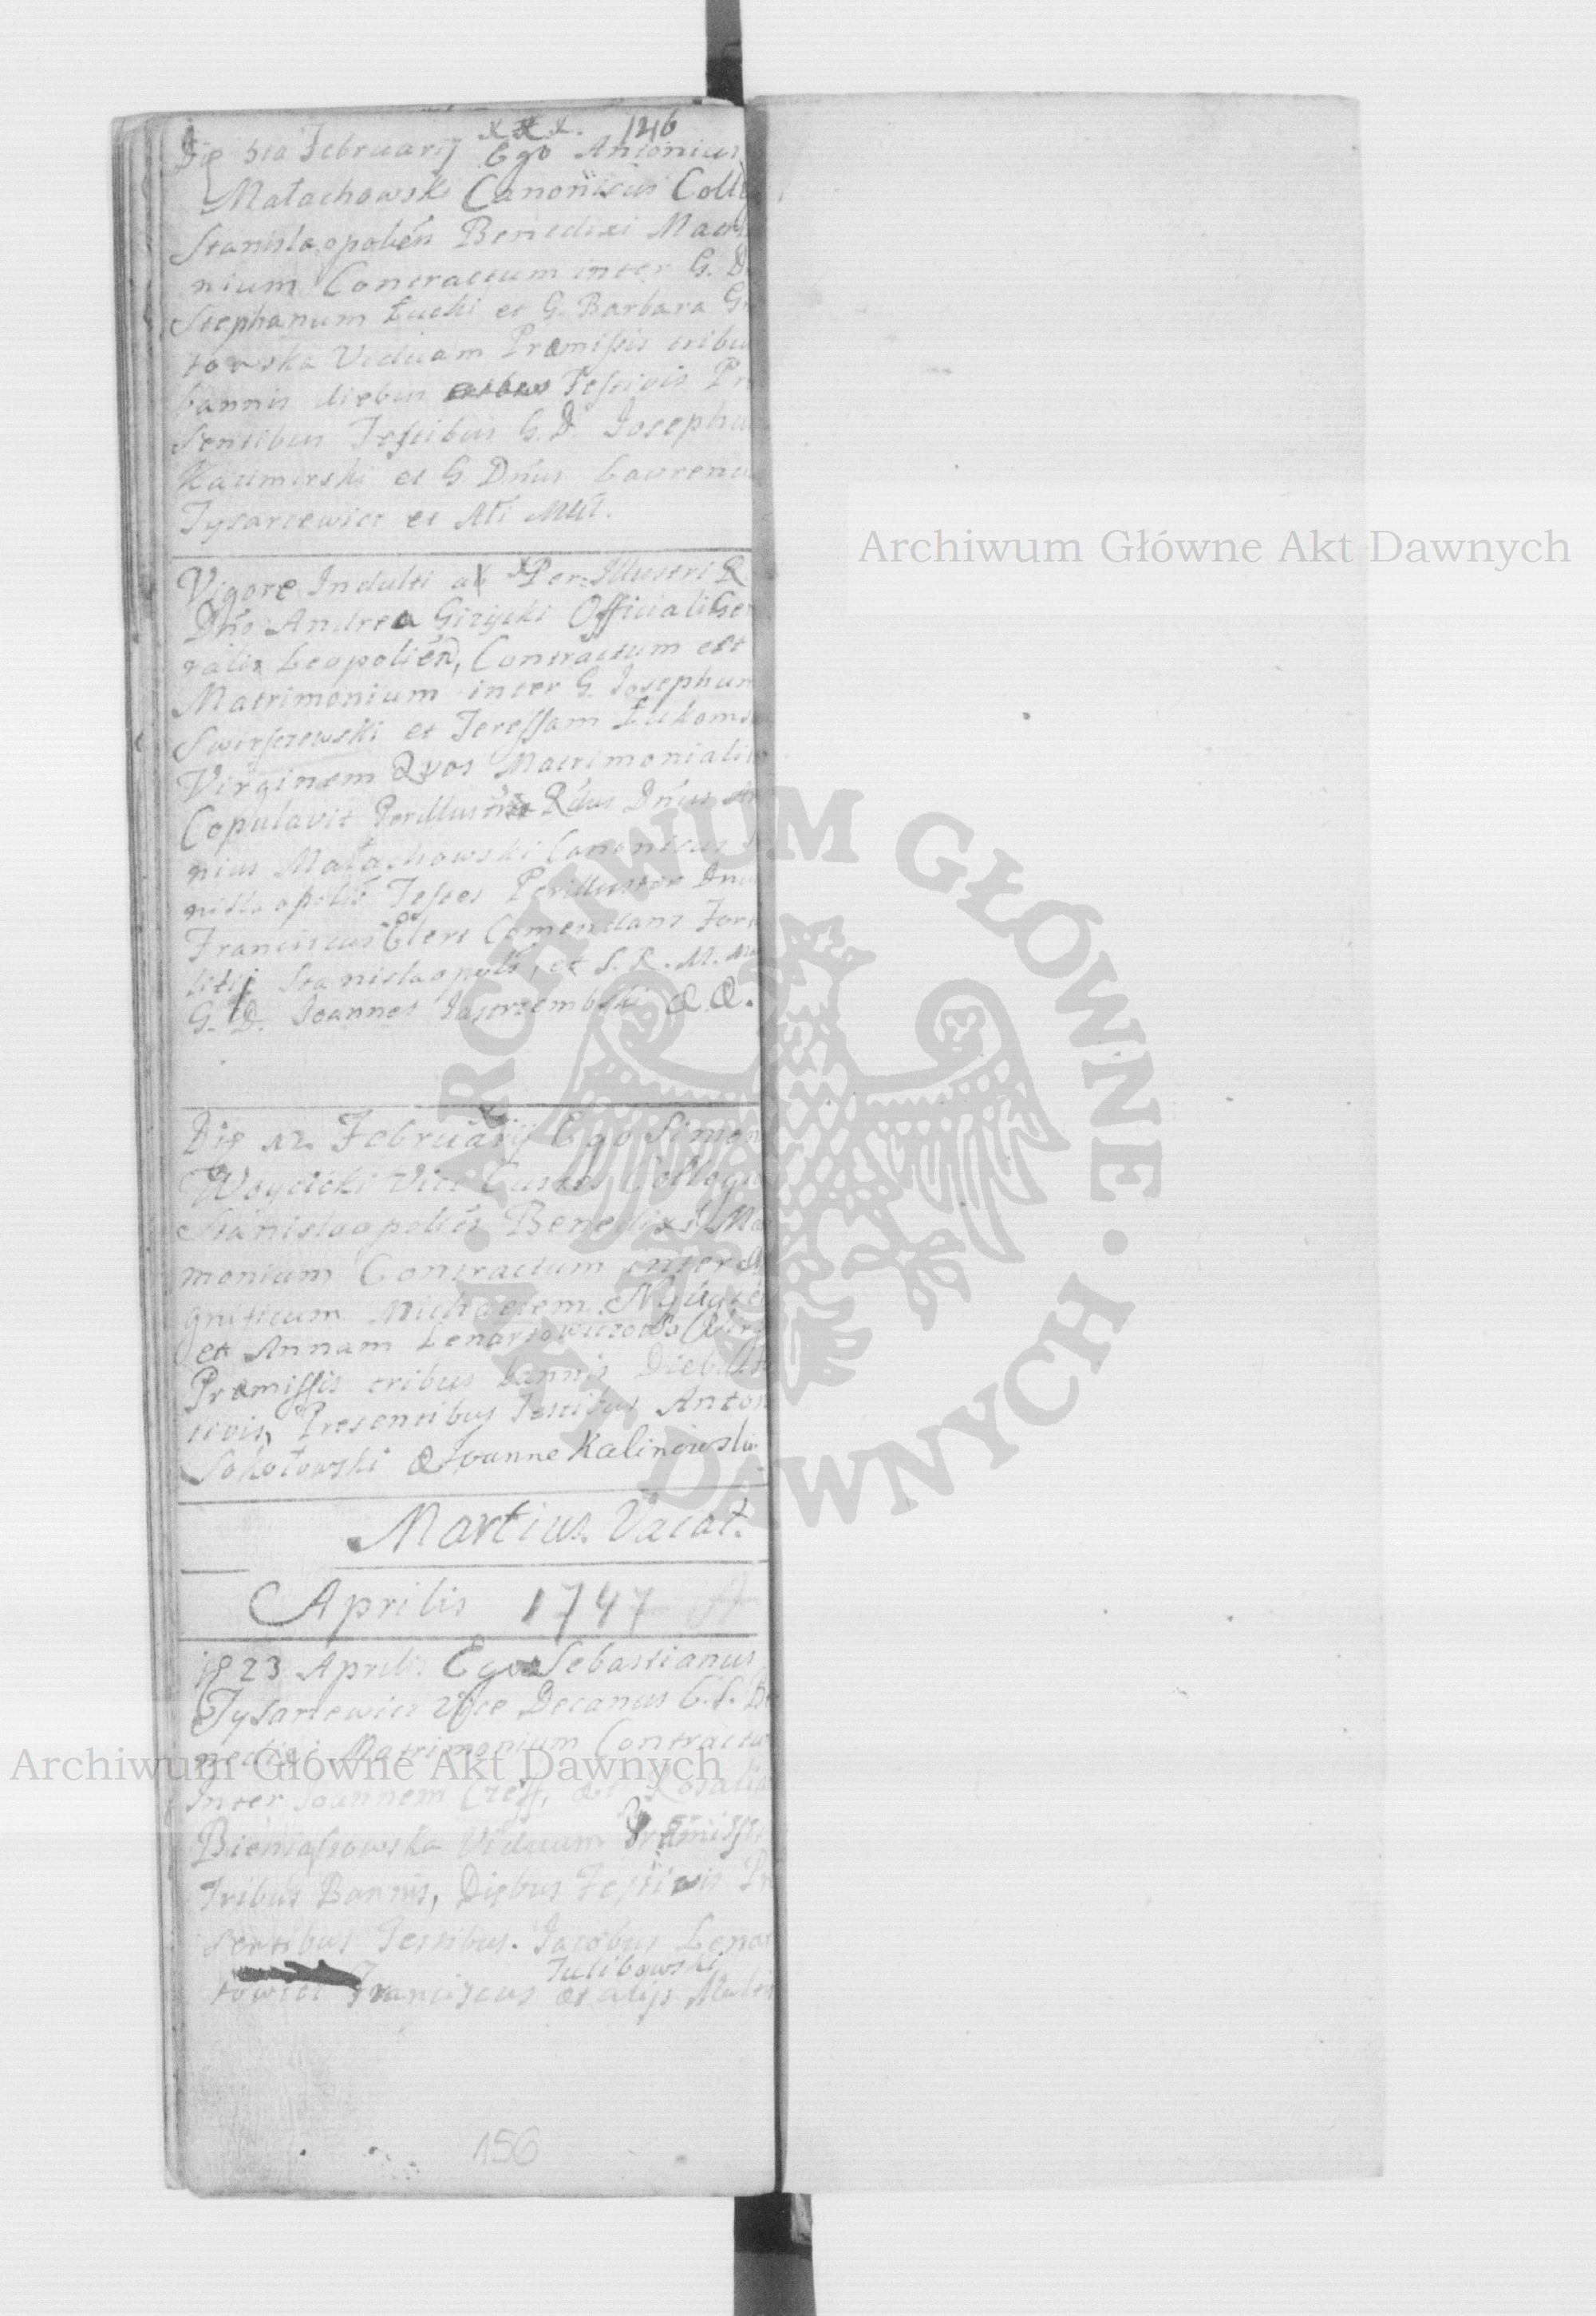 x x x. 126
Die 5ta Februarij Ego Antonius
Małachowski Canonicus Colleg
Stanislaopolień Benedixi Matri
nium Contractum inter G. D
Stephanum Łucki et G. Barbara Gr
towska Viduam Præmissis tribu
bannis diebus Festivis Pr
sentibus Testibus G. D. Josephu
Kazimirski et G Dnus Laurenti
Tysarcewicz et Ali Mult.
Vigore Indulti ab Per-Illustri R
Dno Andrea Giżycki Officiali Gen
ralis Leopolień, Contractum est
Matrimonium inter G. Josephum
Swirszczewski et Teressam Łukoms
Virginem Quos Matrimonialit
Copulavit Perillustris Rdus Dnus An
nius Małachowski Canonicus S
nislaopolis Testes Perillustris Dnu
Franciscus Elert Comendans Forta
litij Stanislaopolis, et S. R. M. Ma
G. D. Joannes Jastrzembski &&.
Die 12. Februarij Ego Simon
Woycicki Vice Custos Collegia
Stanislaopolień Benedixi Ma
monium Contractum inter M
gnificum Michaelem
et Annam Lenartowiczowa Virg
Præmissis tribus bannis Diebus
tivis, Presentibus Testibus Anton
Sokołowski & Joanne Kalinowski
Martius. Vacat.
Aprilis 1747
23 Aprilis Ego Sebastianus
Tysarcewicz Vice Decanus C. S. Be
nedixi Matrimonium Contractu
Inter Joannem Czeff, et Rosalia
Bieniaszowska Viduam Præmissis
Tribus Bannis, Diebus Festiwis Pr
sentibus Testibus. Jacobus Lenar
Tulibowski
towicz Franciscus et alijs Multi
156
Archiwum Główne Akt Dawnych
Archiwum Główne Akt Dawnych
ARCHIWUM GŁÓWNE AKT DAWNYCH